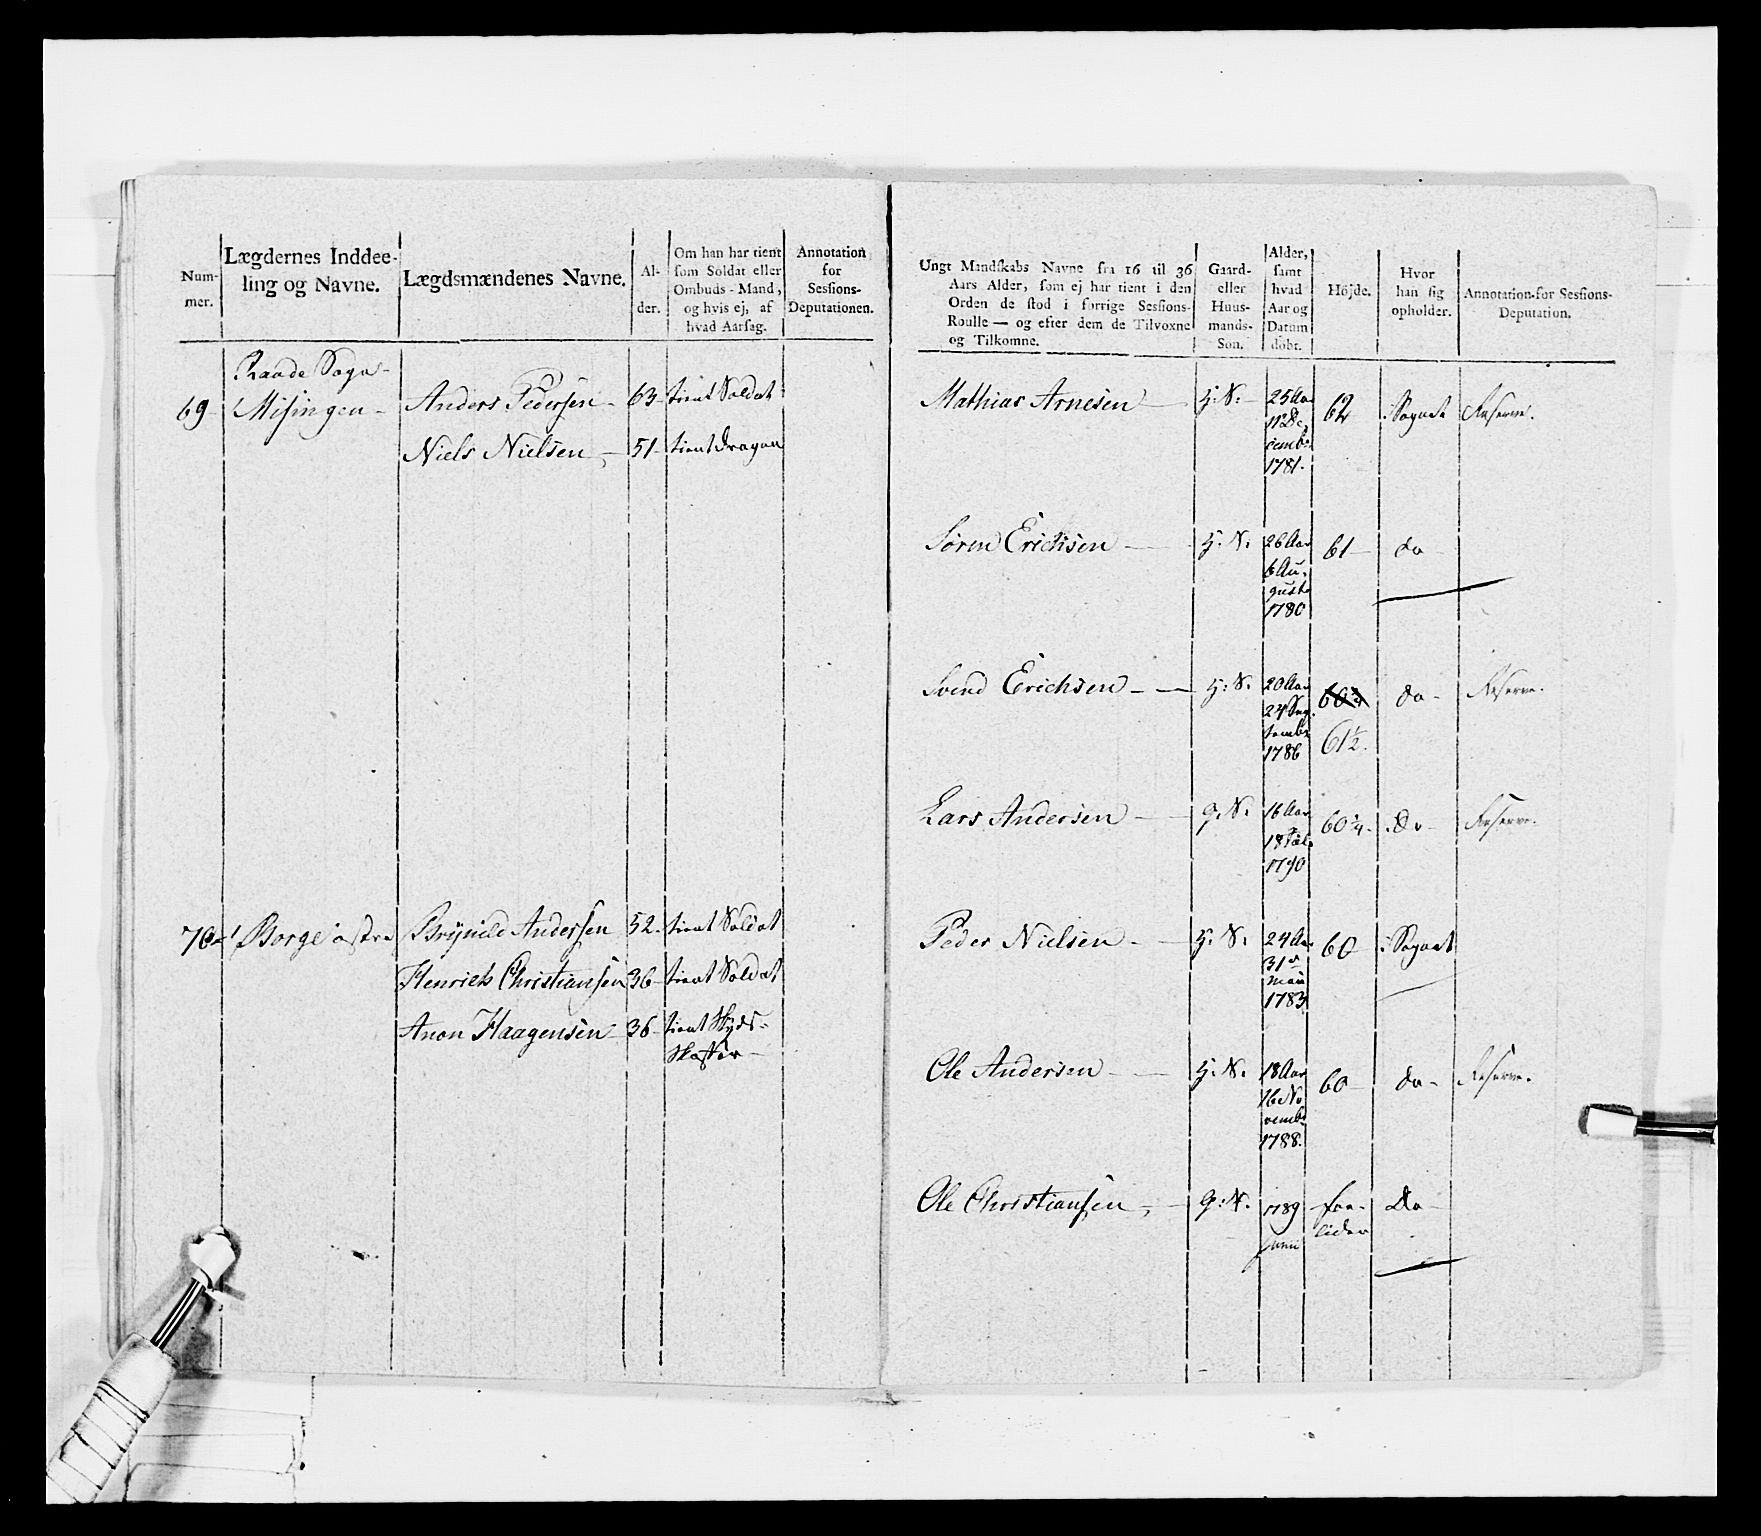 Num-
mer.
Lægdernes Inddee-
ling og Navne.
Lægdsmændenes Navne.
Al-
der.
Om han har tient
som Soldat eller
Ombuds-Mand,
og hvis ej, af
hvad Aarsag.
Annotation
for
Sessions-
Deputationen.
Raade Sogn
69 Misingen - Anders Pedersen - 63 - tient Soldat
Niels Nielsen - 51 - tient Dragon
70 - Borge østre Brynild Anderssen 52 - tient Soldat
Henrich Christianssen 36 - tient Soldat
Anon Haagensen - 36 - tient Skyds-
Skaffer -
Ungt Mandskabs Navne fra 16 til 36
Aars Alder, som ej har tient i den
Orden de stod i forrige Sessions-
Roulle — og efter dem de Tilvoxne
og Tilkomne.
Gaard-
eller
Huus-
mands-
Son.
Alder,
samt
hvad
Aar og
Datum
dobt.
Højde.
Hvor
han sig
opholder.
Annotation for Sessions-
Deputation.
Mathias Arnesen H: S: 25 Aar 62 i Sognet Reserve.
11 De-
cembr
1781.
Søren Erichsen H: S: 26 Aar 61 do
6 Au-
gusti
1780
Svend Erichsen H: S: 20 Aar 60¾ do - Reserve.
24 Sep-
tembr 61½.
1786
Lars Andersen G: S: 16 Aar 60¼. do - Reserve.
18
1790
Peder Nielsen H: S: 24 Aar 60 i Sognet
31
Maii
1783
Ole Andersen H: S: 18 Aar 60 do - Reserve.
16 No
vembr
1788.
Ole Christiansen G: S: 1789 for- Do
Juni lider